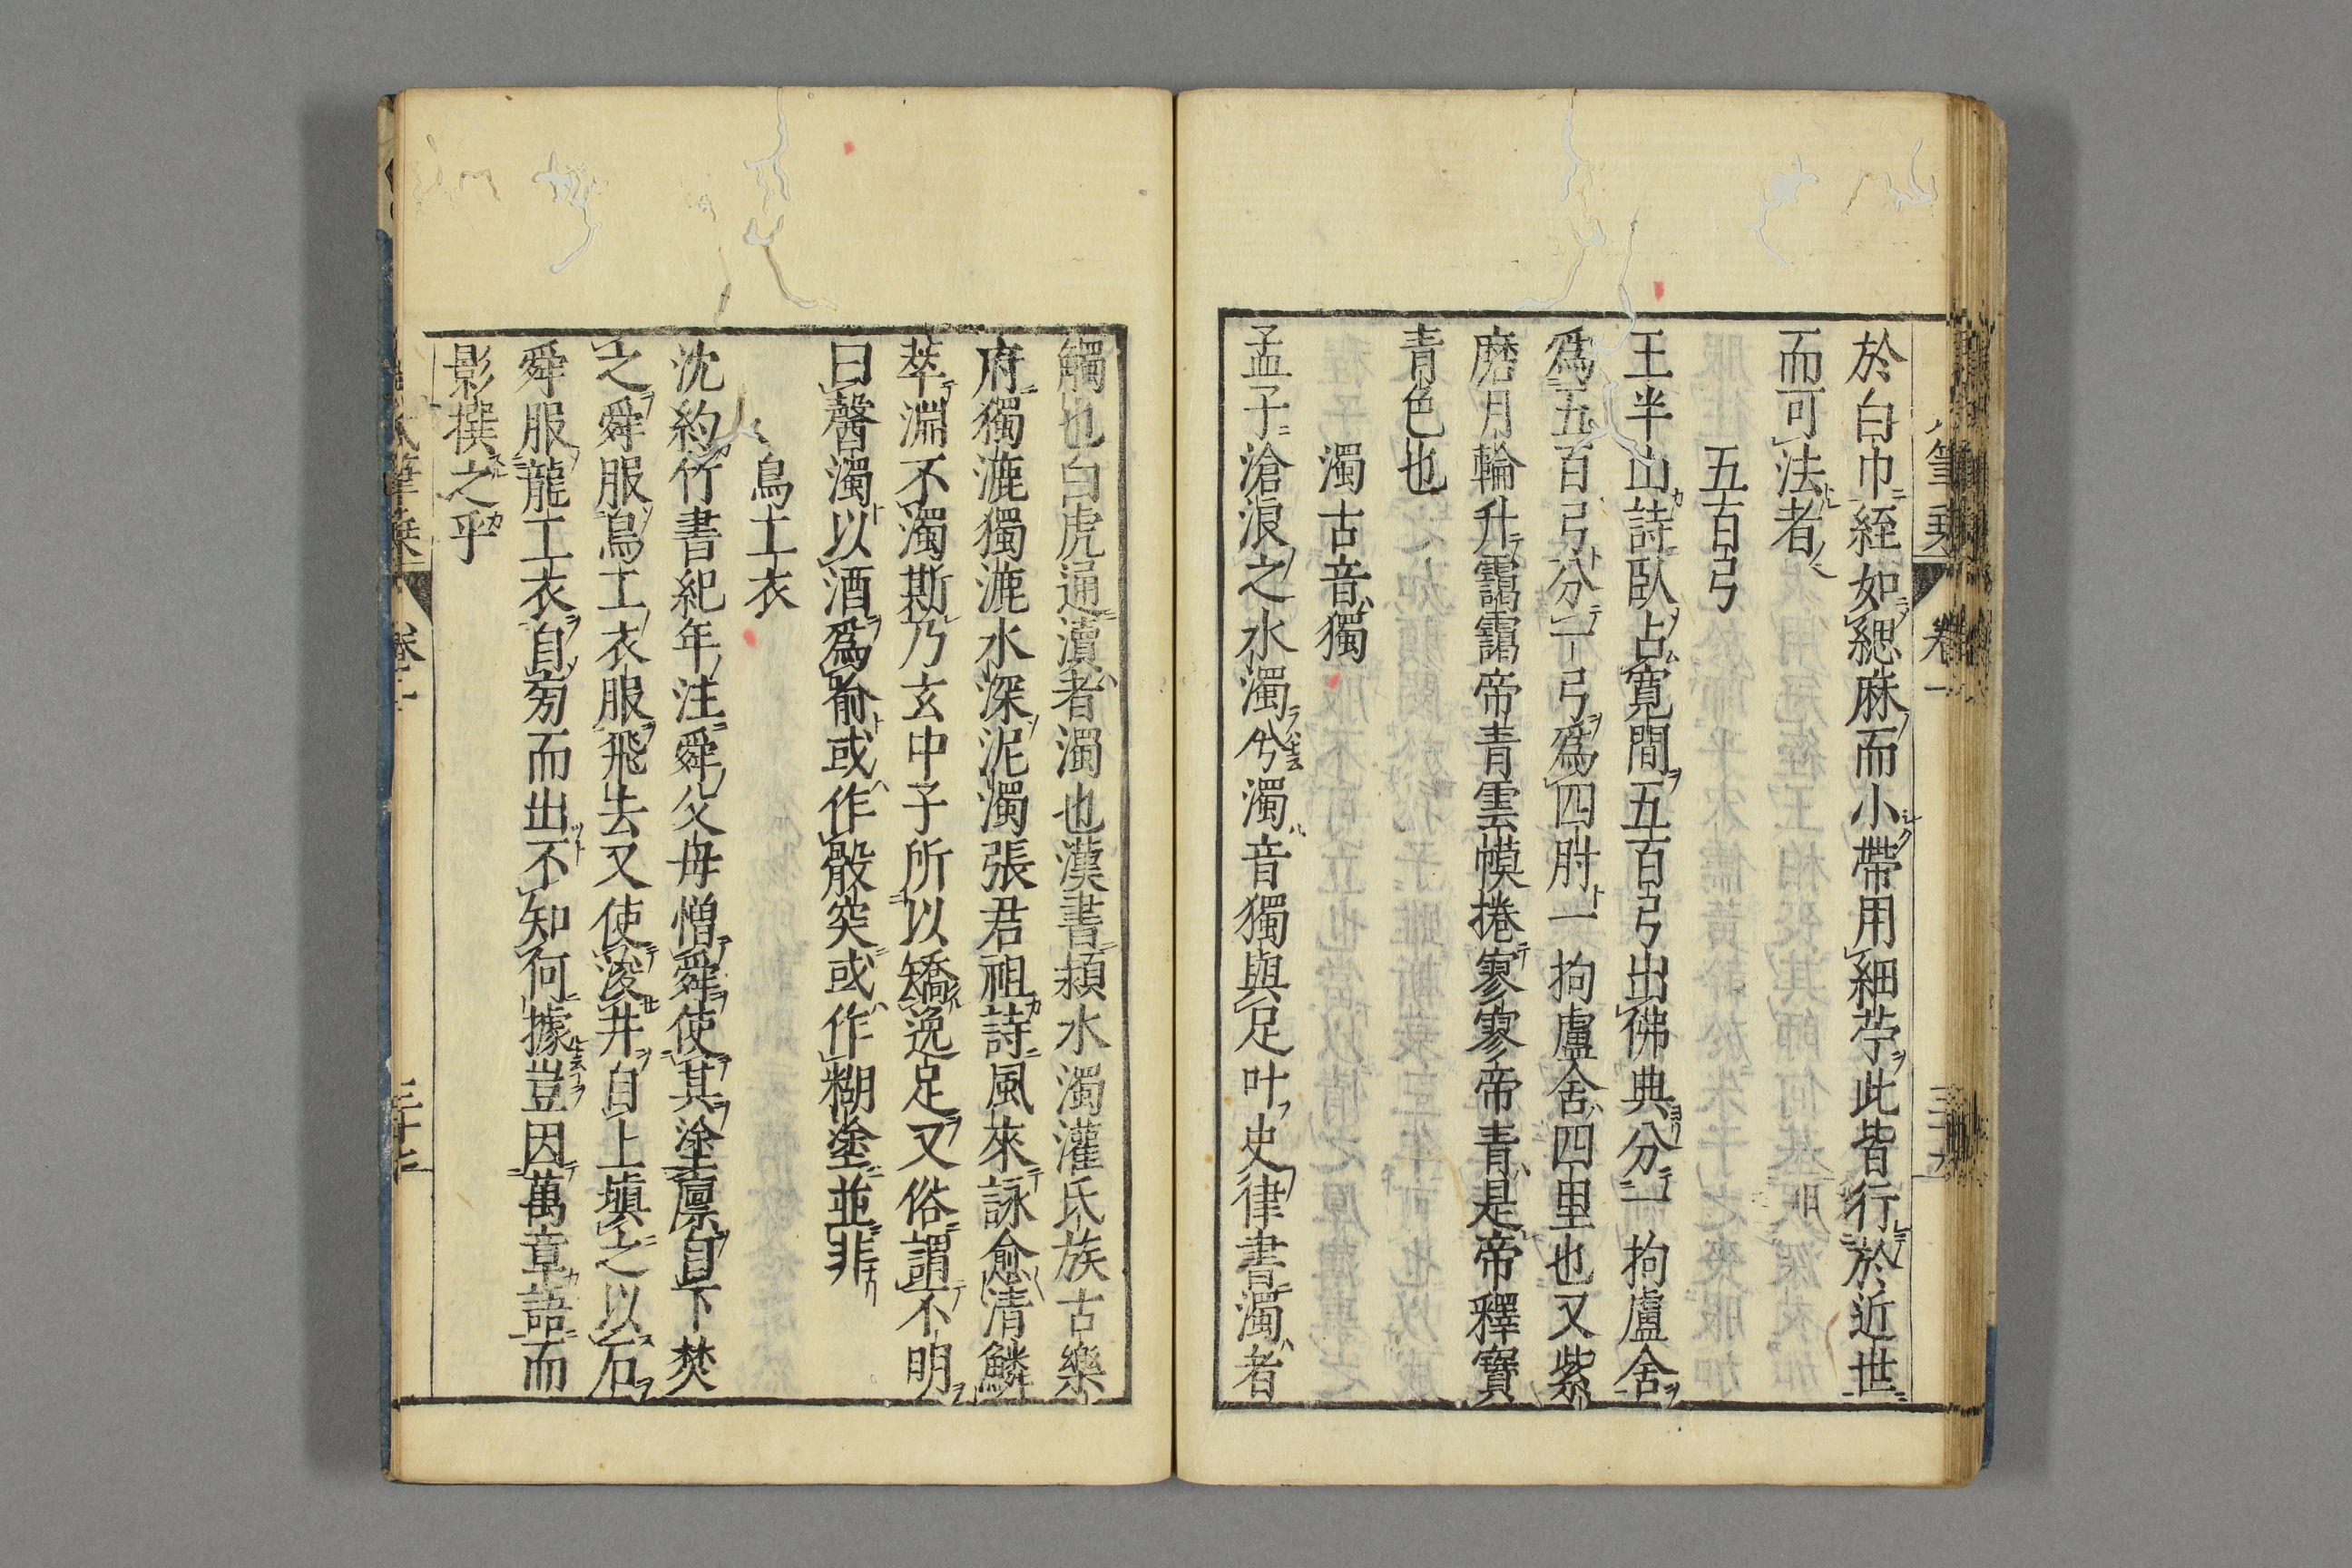 於白巾絰如緦麻而小帶用細苧此皆行於近世
而可法者
五百弓
王半山詩臥占寬間五百弓出佛典分一拘盧舍
爲五百弓分一弓爲四肘一拘盧舍四里也又紫
磨月輪升靄靄帝青雲幙捲寥寥帝青是帝釋寶
青色也
濁古音獨
孟子滄浪之水濁兮濁音獨與足叶史律書濁者
觸也白虎通瀆者濁也漢書潁水濁灌氏族古樂
府獨漉獨漉水深泥濁張君祖詩風來詠愈清鱗
萃淵不濁斯乃玄中子所以矯逸足又俗謂不明
曰醫濁以酒爲喻或作骰突或作糊塗並非
鳥工衣
沈約竹書紀年注舜父母憎舜使其塗廩自下焚
之舜服鳥工衣服飛去又使浚井自上塡之以石
舜服龍工衣自旁而出不知何據豈因萬章語而
影撰之乎
筆乗 卷一
筆乗 卷一 三十七